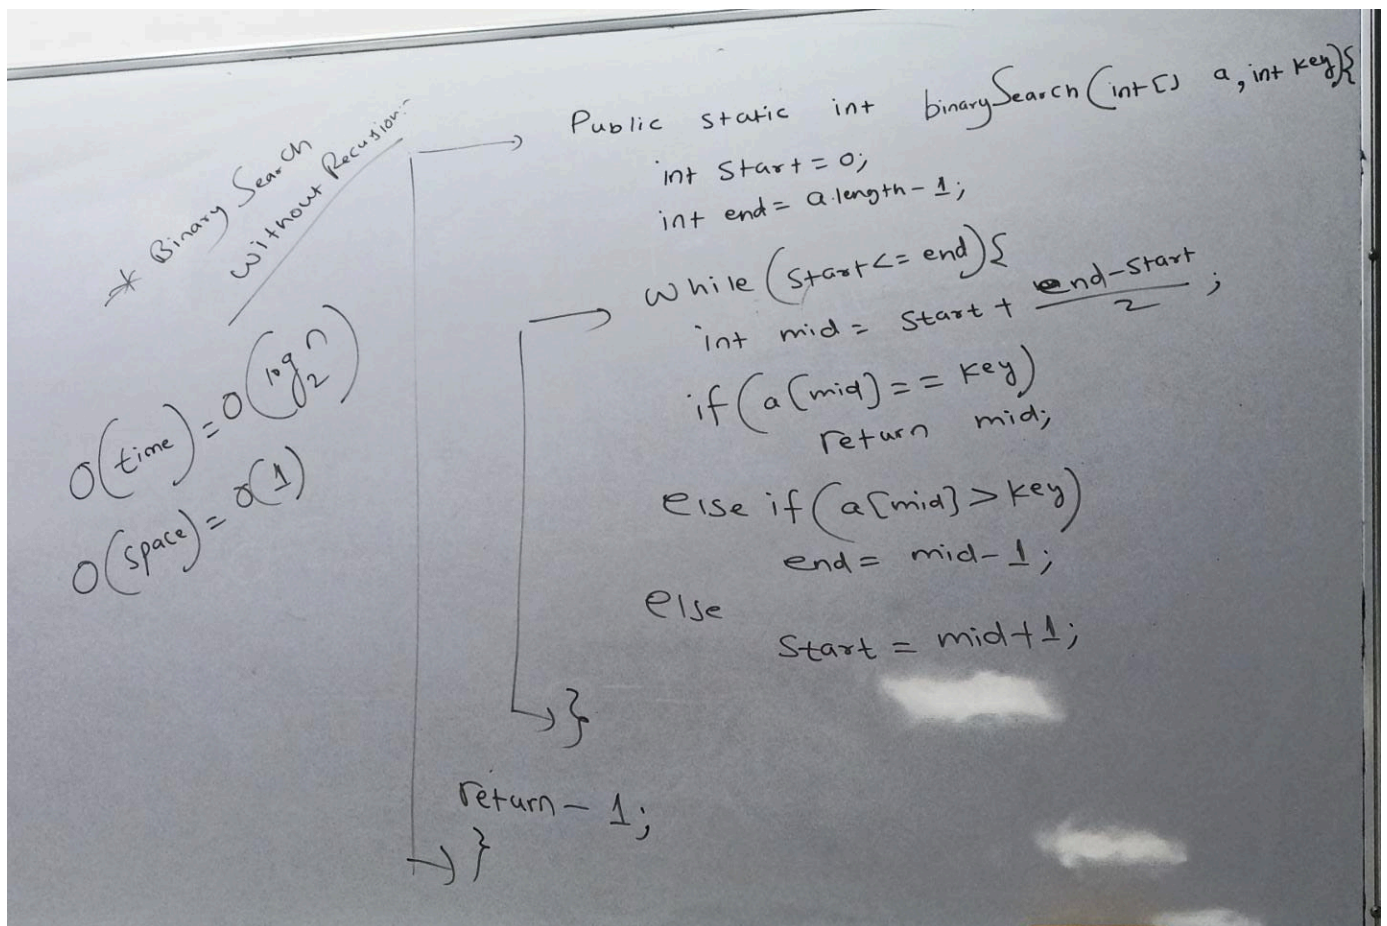 * Binary Search
without Recusion:-
O(time) = O(log₂n)
O(space) = O(1)
Public static int binarySearch(int[] a, int key){
int start = 0;
int end = a.length - 1;
while (start <= end) {
int mid = start + end-start/2;
if (a[mid] == key)
return mid;
else if (a[mid] > key)
end = mid - 1;
else
start = mid + 1;
}
return - 1;
}